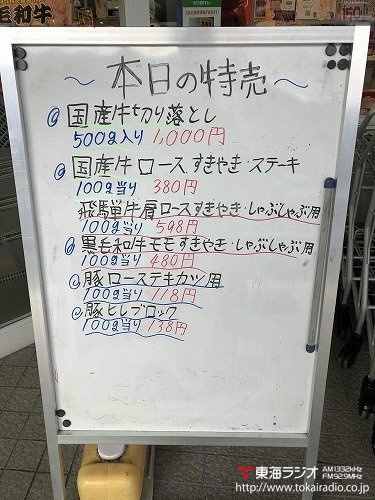 毛和牛
〜本日の特売〜
@国産牛切り落とし
500g入り 1,000円
@国産牛ロース、すきやき・ステーキ
100g当り 380円
飛騨牛肩ロースすきやき・しゃぶしゃぶ用
100g当り 598円
@黒毛和牛モモすきやき・しゃぶしゃぶ用
100g当り 480円
@豚ローステキカツ用
100g当り 118円
@豚ヒレブロック
100g当り 138円
東海ラジオ AM1332kHz FM92.9MHz
http://www.tokairadio.co.jp